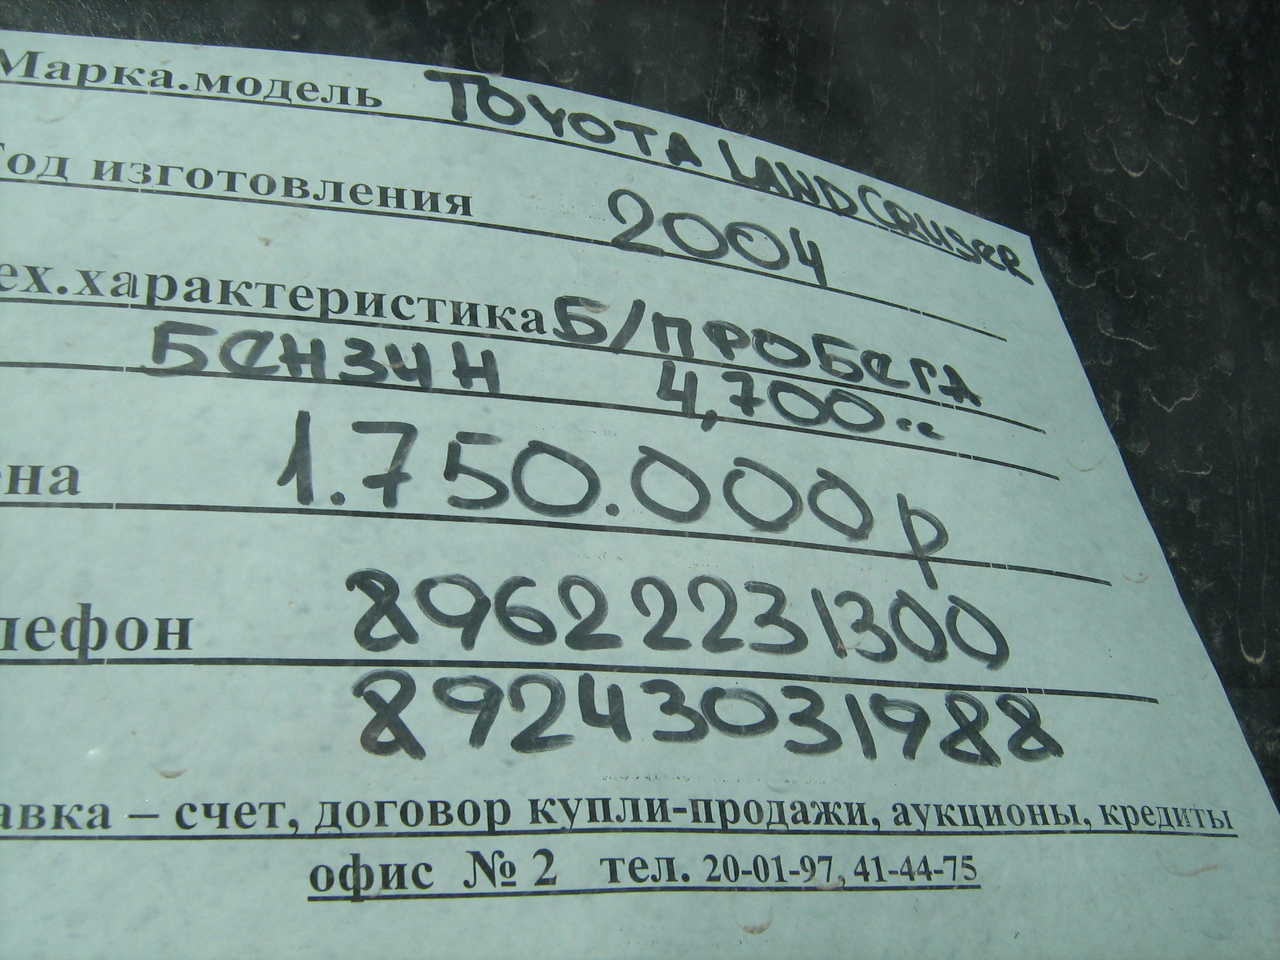 Марка.модель TOYOTA LAND CRUISER
Год изготовления 2004
ех.характеристика Б/ПРОБЕГА
БЕНЗИН 4,700..
ена 1.750.000 р
лефон 89622231300
89243031988
авка – счет, договор купли-продажи, аукционы, кредиты
офис № 2 тел. 20-01-97, 41-44-75